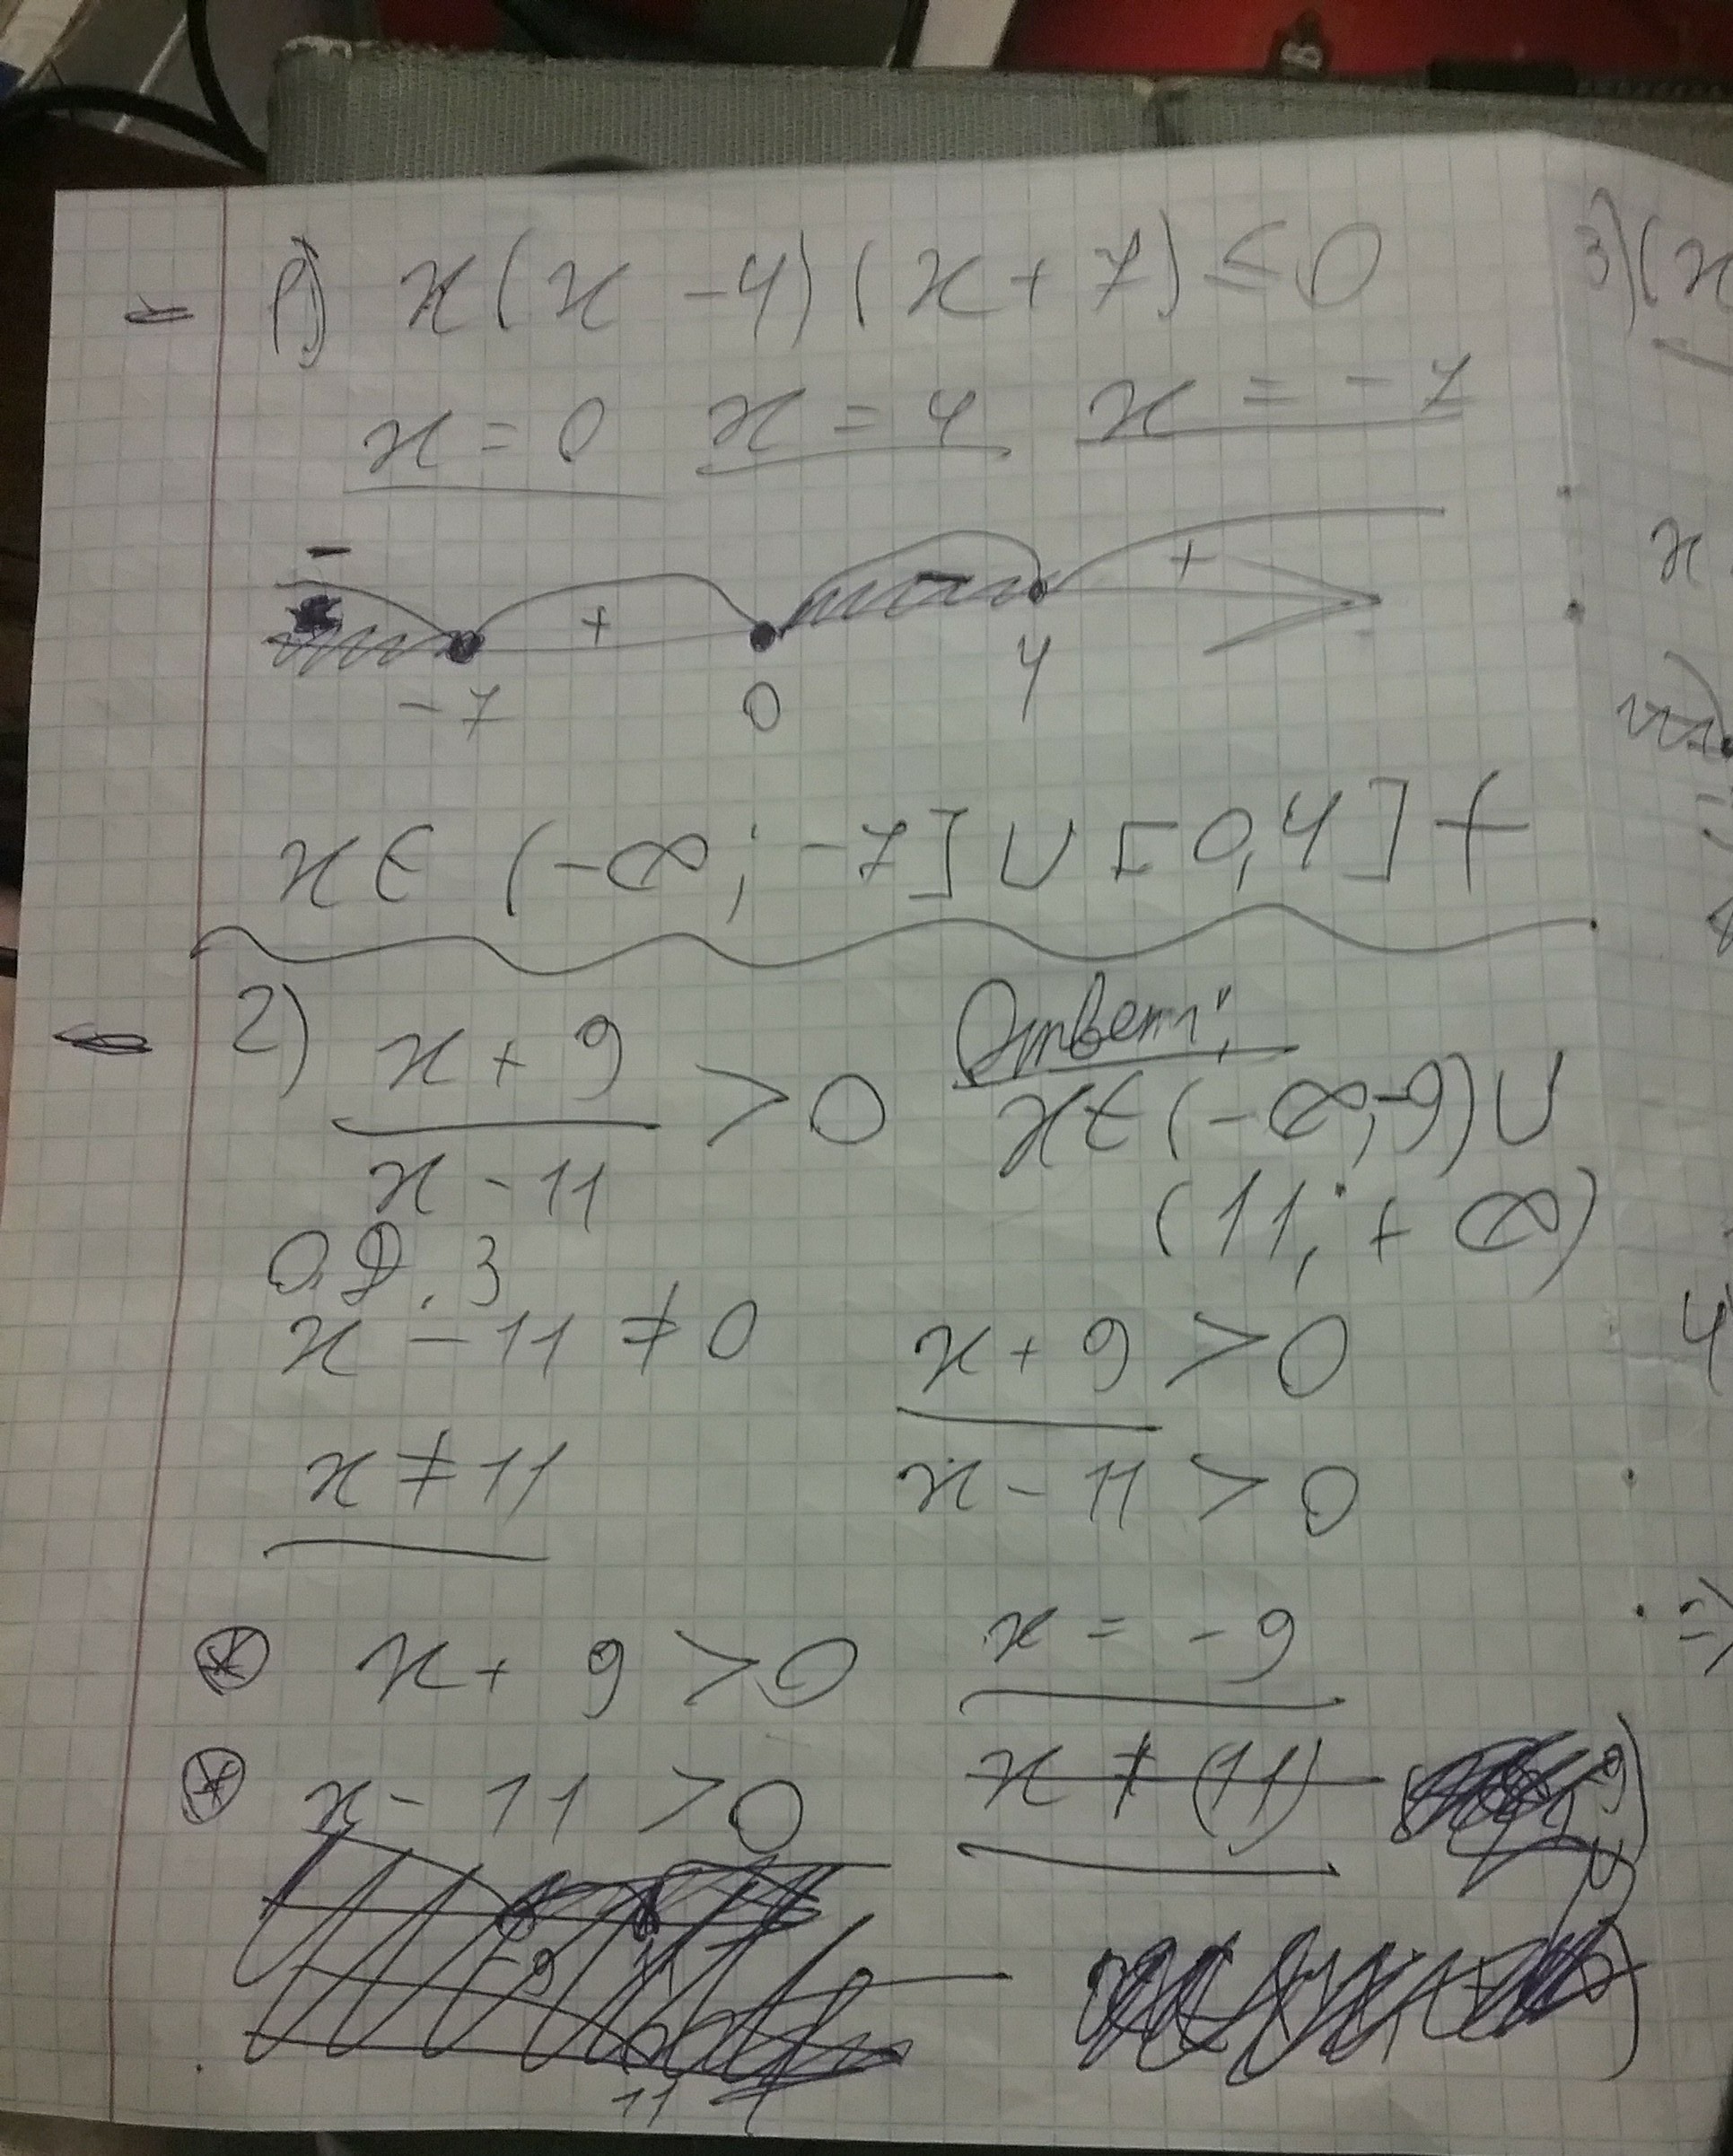 1) x(x-4)(x+7)≤0
x=0 x=4 x=-7
- + - +
-7 0 4
x∈(-∞;-7]∪[0,4]+
2) x+9
x-11 >0
Ответ:
x∈(-∞;-9)∪
(11;+∞)
О.Д.З
x-11≠0
x≠11
x+9>0
x-11>0
x+9>0
x-11>0
x=-9
x≠(11)
-9
11
3)(x
x
4
=>